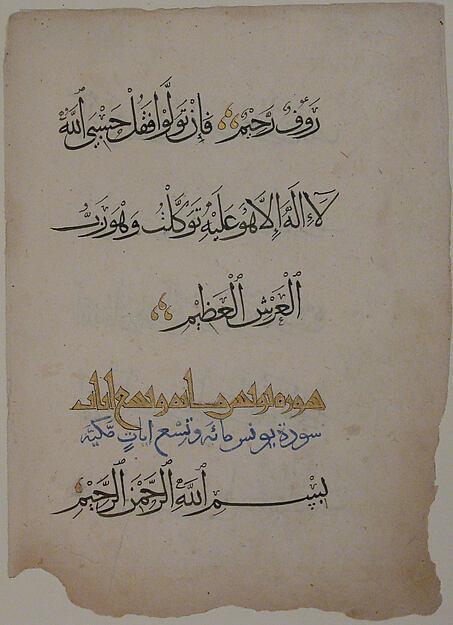 رَءُوفٌ رَّحِيمٌ فَإِنْ تَوَلَّوْا فَقُلْ حَسْبِيَ اللَّهُ
لَا إِلَٰهَ إِلَّا هُوَ عَلَيْهِ تَوَكَّلْتُ وَهُوَ رَبُّ
الْعَرْشِ الْعَظِيمِ
سورة يونس مائة وتسع ايات
سورة يونس مائة وتسع ايات مكية
بِسْمِ اللَّهِ الرَّحْمَٰنِ الرَّحِيمِ